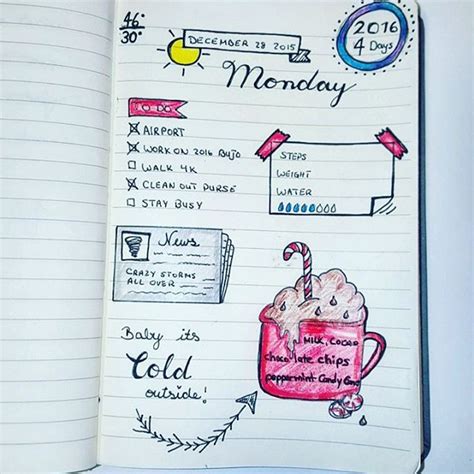 46°
30°
DECEMBER 28 2015
2016
4 Days
Monday
TO DO
AIRPORT
WORK ON 2016 BUJO
WALK 4K
CLEAN OUT PURSE
STAY BUSY
STEPS
WEIGHT
WATER
News
CRAZY STORMS
ALL OVER
Baby its
Cold
outside!
MILK, COCOA
chocolate chips
peppermint Candy Cane